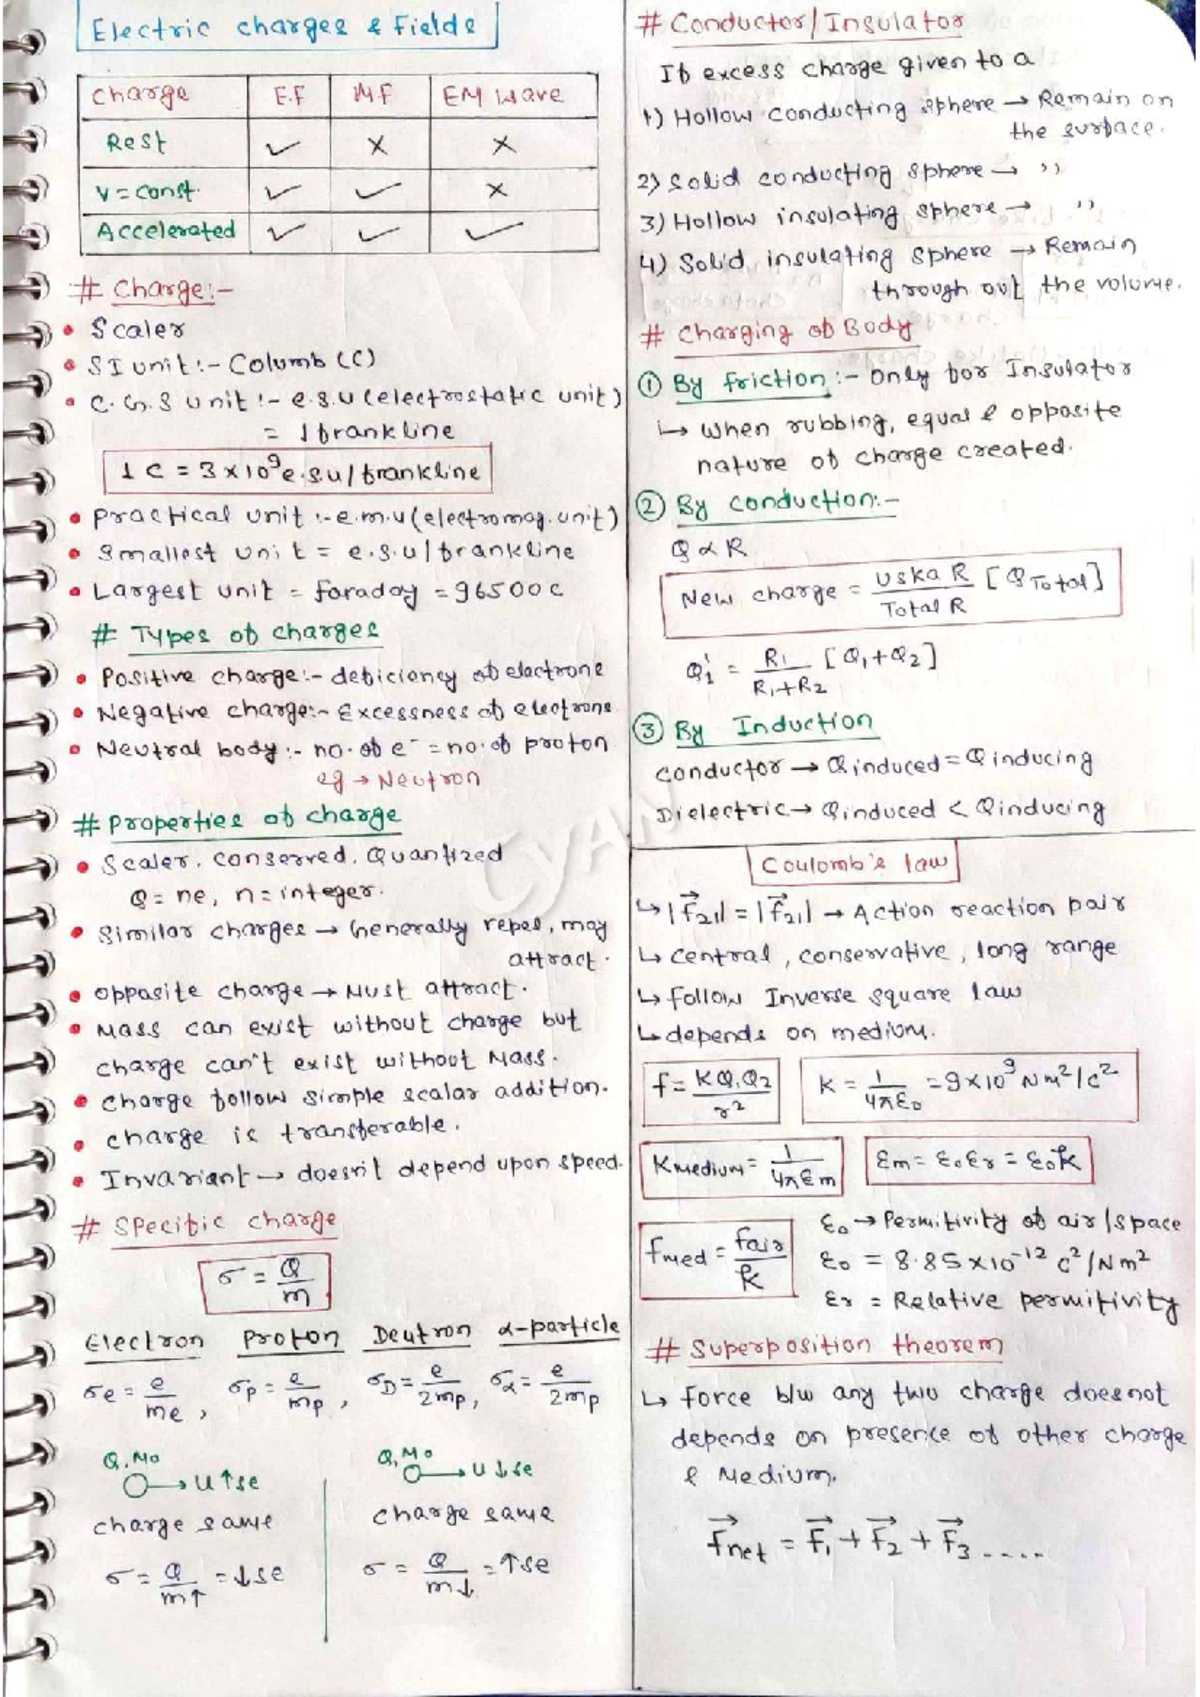 Electric charges & Fields
Charge E.F M.F EM wave
Rest ✓ × ×
V = const. ✓ ✓ ×
Accelerated ✓ ✓ ✓
# Charge:-
• Scaler
• SI unit:- Columb (C)
• C.G.S unit:- e.s.u (electrostatic unit)
= 1 frankline
1 C = 3×10⁹ e.s.u/frankline
• Practical unit :- e.m.u (electromag. unit)
• Smallest unit = e.s.u/frankline
• Largest unit = faraday = 96500C
# Types of charges
• Positive charge:- deficiency of electrone
• Negative charge:- Excessness of electrons
• Neutral body:- no. of e⁻ = no. of proton
eg → Neutron
# Properties of charge
• Scaler, conserved, Quantized
Q = ne, n = integer.
• Similar charges → Generally repel, may
attract.
• Opposite charge → Must attract.
• Mass can exist without charge but
charge can't exist without Mass.
• Charge follow simple scalar addition.
• Charge is transferable.
• Invariant → doesn't depend upon speed.
# Specific charge
σ = Q/m
Electron Proton Deutron α-particle
σe = e/me, σp = e/mp, σD = e/2mp, σα = e/2mp
Q, Mo → U↑se
charge same
σ = Q/m↑ = ↓se
Q, Mo → U↓se
charge same
σ = Q/m↓ = ↑se
# Conductor/Insulator
If excess charge given to a
1) Hollow conducting sphere → Remain on
the surface.
2) Solid conducting sphere → ,,
3) Hollow insulating sphere → ,,
4) Solid insulating sphere → Remain
through out the volume.
# Charging of Body
① By friction:- Only for Insulator
↳ When rubbing, equal & opposite
nature of charge created.
② By conduction:-
Q ∝ R
New charge = uska R/Total R [Q Total]
Q₁' = R₁/R₁+R₂ [Q₁+Q₂]
③ By Induction
Conductor → Qinduced = Qinducing
Dielectric → Qinduced < Qinducing
Coulomb's law
↳ |F⃗₂₁| = |F⃗₂₁| → Action reaction pair
↳ Central, conservative, long range
↳ Follow Inverse square law
↳ depends on medium.
F = KQ₁Q₂/r²
K = 1/4πε₀ = 9×10⁹ Nm²/C²
Kmedium = 1/4πεm
εm = ε₀εr = ε₀k
Fmed = Fair/k
ε₀ → Permitivity of air/space
ε₀ = 8.85×10⁻¹² C²/Nm²
εr = Relative permitivity
# Superposition theorem
↳ Force b/w any two charge does not
depends on presence of other charge
& Medium.
F⃗net = F⃗₁ + F⃗₂ + F⃗₃ .....
CYAN